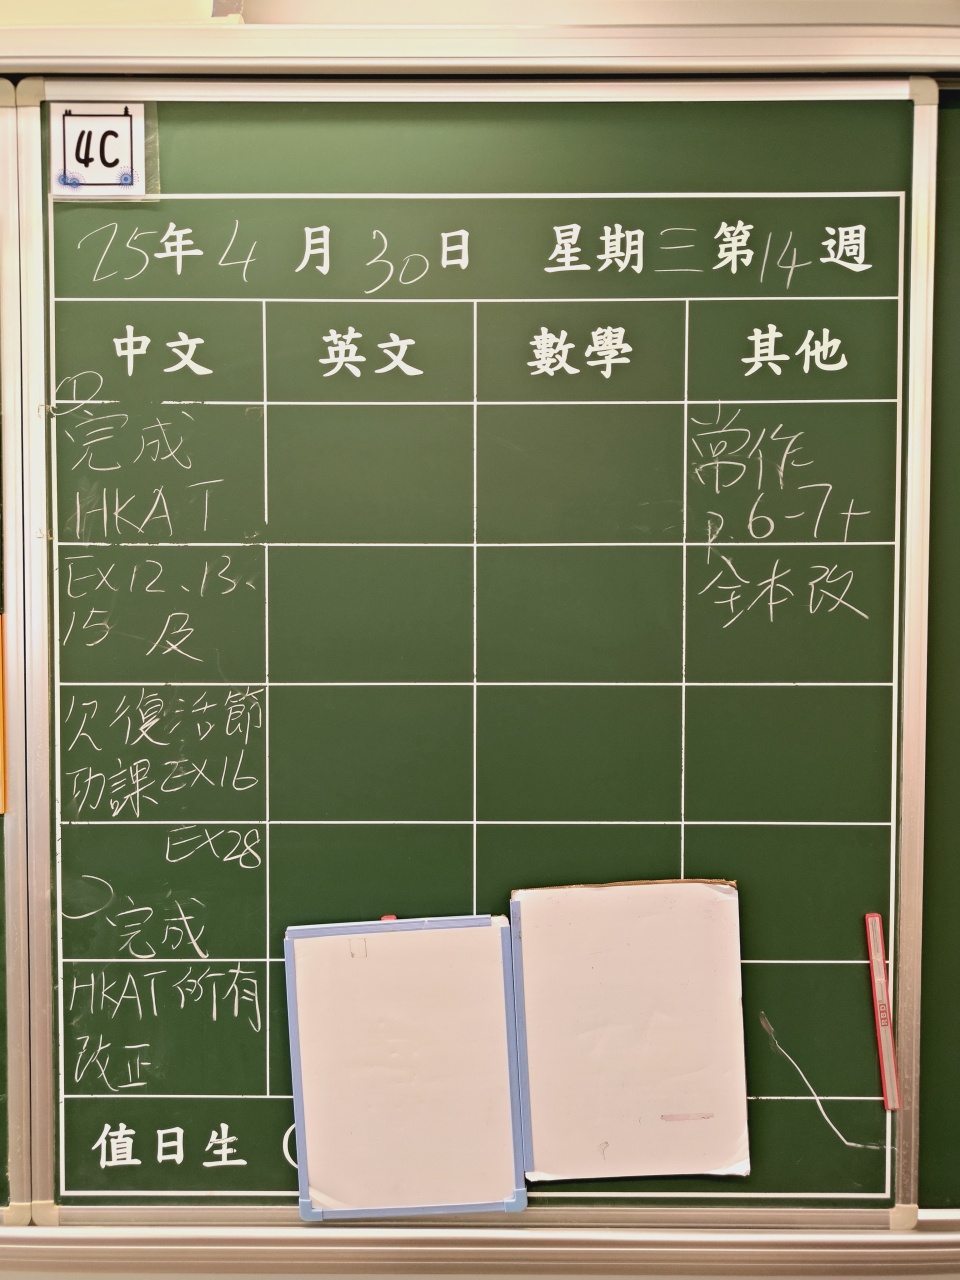 4C
25年4月30日 星期三第14週
中文 英文 數學 其他
①
完成
HKAT
EX12、13、
15 及
欠復活節
功課EX16
EX28
完成
HKAT所有
改正
常作
P.6-7+
全本改
值日生